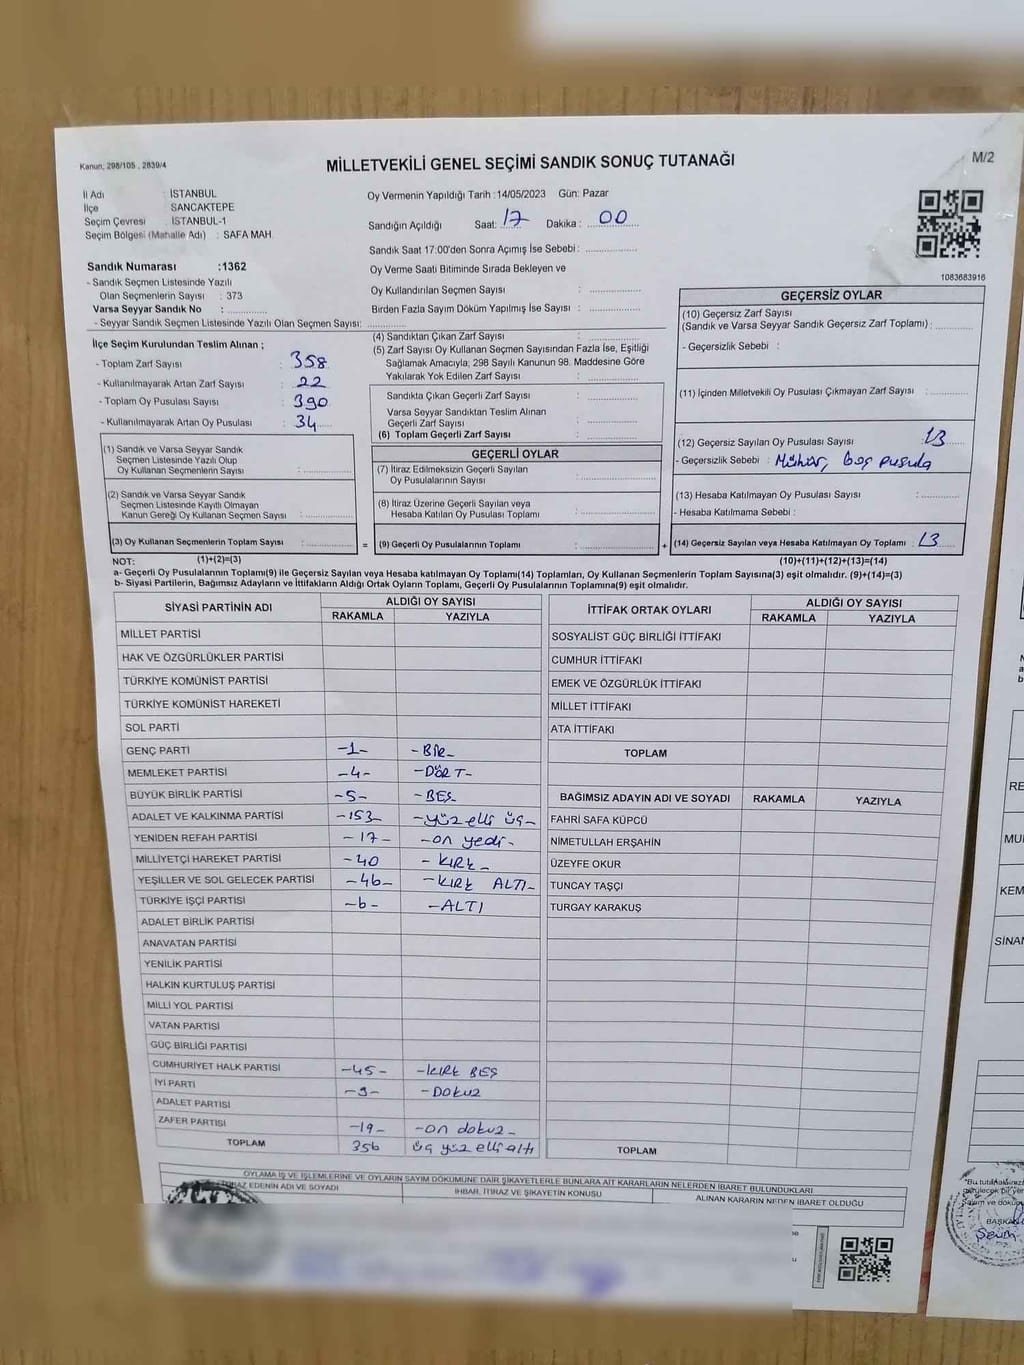 Kanun; 298/105 , 2839/4
MİLLETVEKİLİ GENEL SEÇİMİ SANDIK SONUÇ TUTANAĞI
M/2
İl Adı : İSTANBUL
İlçe SANCAKTEPE
Seçim Çevresi İSTANBUL-1
Seçim Bölgesi (Mahalle Adı) : SAFA MAH.
Oy Vermenin Yapıldığı Tarih :14/05/2023 Gün: Pazar
Sandığın Açıldığı Saat: 17 Dakika : 00
Sandık Saat 17.00'den Sonra Açımış İse Sebebi :
Oy Verme Saati Bitiminde Sırada Bekleyen ve
Oy Kullandırılan Seçmen Sayısı :
Birden Fazla Sayım Döküm Yapılmış İse Sayısı :
1083683916
Sandık Numarası :1362
- Sandık Seçmen Listesinde Yazılı
Olan Seçmenlerin Sayısı : 373
Varsa Seyyar Sandık No :
- Seyyar Sandık Seçmen Listesinde Yazılı Olan Seçmen Sayısı:
İlçe Seçim Kurulundan Teslim Alınan ;
- Toplam Zarf Sayısı : 358
- Kullanılmayarak Artan Zarf Sayısı : 22
- Toplam Oy Pusulası Sayısı : 390
- Kullanılmayarak Artan Oy Pusulası : 34
(1) Sandık ve Varsa Seyyar Sandık
Seçmen Listesinde Yazılı Olup
Oy Kullanan Seçmenlerin Sayısı :
(2) Sandık ve Varsa Seyyar Sandık
Seçmen Listesinde Kayıtlı Olmayan
Kanun Gereği Oy Kullanan Seçmen Sayısı :
(3) Oy Kullanan Seçmenlerin Toplam Sayısı :
(4) Sandıktan Çıkan Zarf Sayısı :
(5) Zarf Sayısı Oy Kullanan Seçmen Sayısından Fazla İse, Eşitliği
Sağlamak Amacıyla; 298 Sayılı Kanunun 98. Maddesine Göre
Yakılarak Yok Edilen Zarf Sayısı :
Sandıkta Çıkan Geçerli Zarf Sayısı :
Varsa Seyyar Sandıktan Teslim Alınan
Geçerli Zarf Sayısı :
(6) Toplam Geçerli Zarf Sayısı :
GEÇERLİ OYLAR
(7) İtiraz Edilmeksizin Geçerli Sayılan
Oy Pusulalarının Sayısı :
(8) İtiraz Üzerine Geçerli Sayılan veya
Hesaba Katılan Oy Pusulası Toplamı :
= (9) Geçerli Oy Pusulalarının Toplamı :
GEÇERSİZ OYLAR
(10) Geçersiz Zarf Sayısı
(Sandık ve Varsa Seyyar Sandık Geçersiz Zarf Toplamı) :
- Geçersizlik Sebebi :
(11) İçinden Milletvekili Oy Pusulası Çıkmayan Zarf Sayısı :
(12) Geçersiz Sayılan Oy Pusulası Sayısı : 13
- Geçersizlik Sebebi : Mühür, boş pusula
(13) Hesaba Katılmayan Oy Pusulası Sayısı :
- Hesaba Katılmama Sebebi :
+ (14) Geçersiz Sayılan veya Hesaba Katılmayan Oy Toplamı : 13
NOT: (1)+(2)=(3) (10)+(11)+(12)+(13)=(14)
a- Geçerli Oy Pusulalarının Toplamı(9) ile Geçersiz Sayılan veya Hesaba katılmayan Oy Toplamı(14) Toplamları, Oy Kullanan Seçmenlerin Toplam Sayısına(3) eşit olmalıdır. (9)+(14)=(3)
b- Siyasi Partilerin, Bağımsız Adayların ve İttifakların Aldığı Ortak Oyların Toplamı, Geçerli Oy Pusulalarının Toplamına(9) eşit olmalıdır.
SİYASİ PARTİNİN ADI ALDIĞI OY SAYISI
RAKAMLA YAZIYLA
MİLLET PARTİSİ
HAK VE ÖZGÜRLÜKLER PARTİSİ
TÜRKİYE KOMÜNİST PARTİSİ
TÜRKİYE KOMÜNİST HAREKETİ
SOL PARTİ
GENÇ PARTİ -1- -BİR-
MEMLEKET PARTİSİ -4- -DÖRT-
BÜYÜK BİRLİK PARTİSİ -5- -BEŞ-
ADALET VE KALKINMA PARTİSİ -153- -yüz elli üç-
YENİDEN REFAH PARTİSİ -17- -on yedi-
MİLLİYETÇİ HAREKET PARTİSİ -40 -KIRK-
YEŞİLLER VE SOL GELECEK PARTİSİ -46- -KIRK ALTI-
TÜRKİYE İŞÇİ PARTİSİ -6- -ALTI
ADALET BİRLİK PARTİSİ
ANAVATAN PARTİSİ
YENİLİK PARTİSİ
HALKIN KURTULUŞ PARTİSİ
MİLLİ YOL PARTİSİ
VATAN PARTİSİ
GÜÇ BİRLİĞİ PARTİSİ
CUMHURİYET HALK PARTİSİ -45- -KIRK BEŞ
İYİ PARTİ -9- -DOKUZ
ADALET PARTİSİ
ZAFER PARTİSİ -19- -on dokuz-
TOPLAM 356 üç yüz elli altı
İTTİFAK ORTAK OYLARI ALDIĞI OY SAYISI
RAKAMLA YAZIYLA
SOSYALİST GÜÇ BİRLİĞİ İTTİFAKI
CUMHUR İTTİFAKI
EMEK VE ÖZGÜRLÜK İTTİFAKI
MİLLET İTTİFAKI
ATA İTTİFAKI
TOPLAM
BAĞIMSIZ ADAYIN ADI VE SOYADI RAKAMLA YAZIYLA
FAHRİ SAFA KÜPCÜ
NİMETULLAH ERŞAHİN
ÜZEYFE OKUR
TUNCAY TAŞÇI
TURGAY KARAKUŞ
TOPLAM
OYLAMA İŞ VE İŞLEMLERİNE VE OYLARIN SAYIM DÖKÜMÜNE DAİR ŞİKAYETLERLE BUNLARA AİT KARARLARIN NELERDEN İBARET BULUNDUKLARI
EDENİN ADI VE SOYADI İHBAR, İTİRAZ VE ŞİKAYETİN KONUSU ALINAN KARARIN NEDEN İBARET OLDUĞU